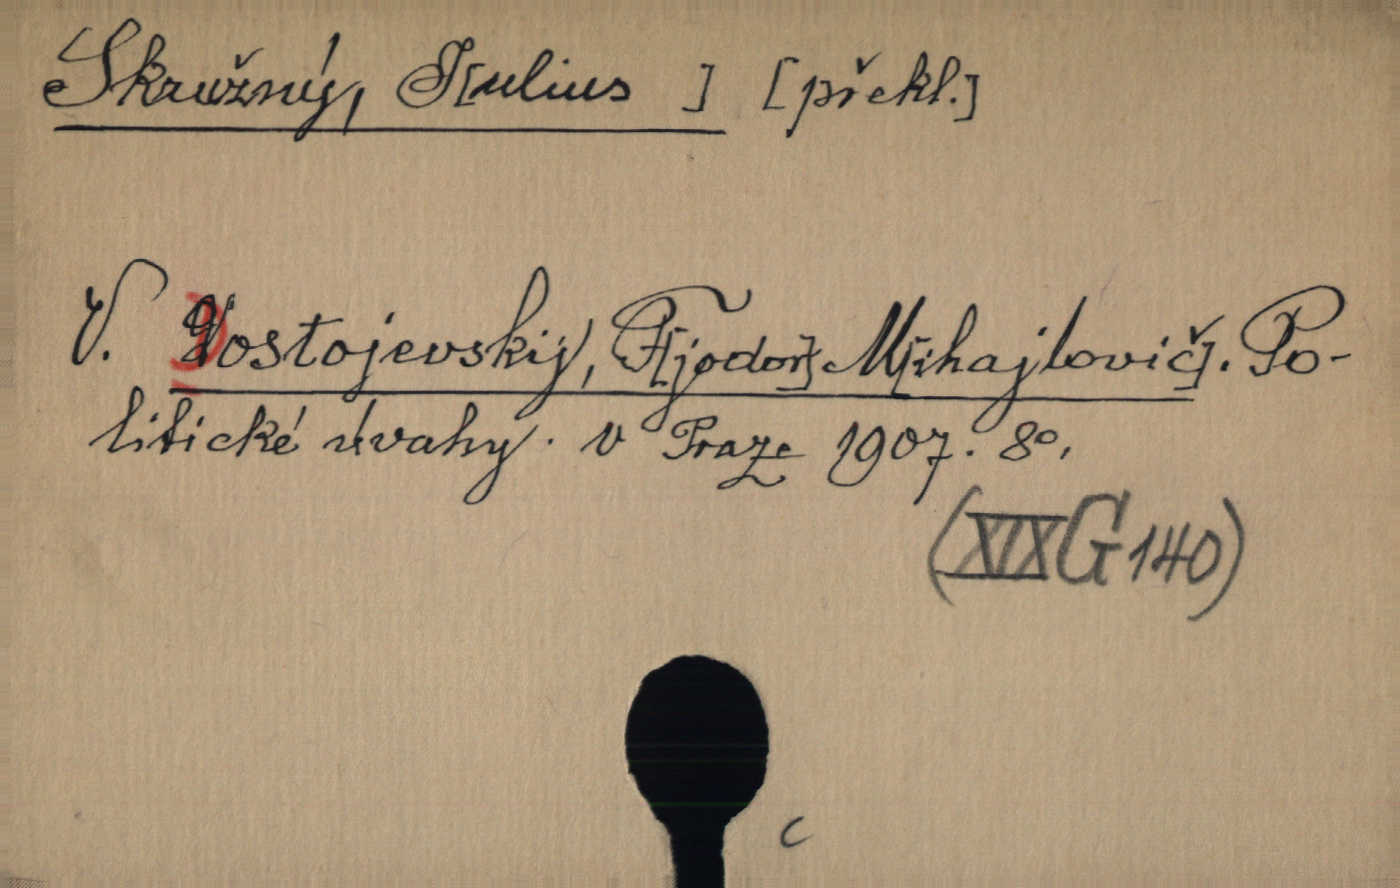 Skružný, J[ulius] [překl.]
V. Dostojevskij, F[jodor] M[ihajlovič]. Po-
litické úvahy. v Praze 1907. 8°.
(XIX G 140)
C